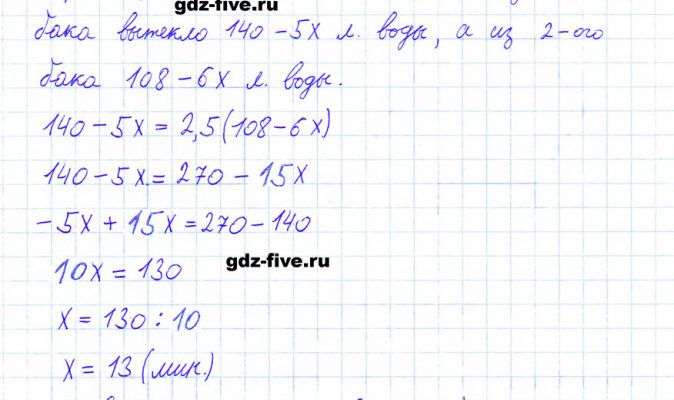 gdz-five.ru
бака вытекло 140 - 5х л. воды, а из 2-ого
бака 108 - 6х л. воды.
140 - 5х = 2,5(108 - 6х)
140 - 5х = 270 - 15х
-5х + 15х = 270 - 140
10х = 130
gdz-five.ru
х = 130 : 10
х = 13 (мин.)